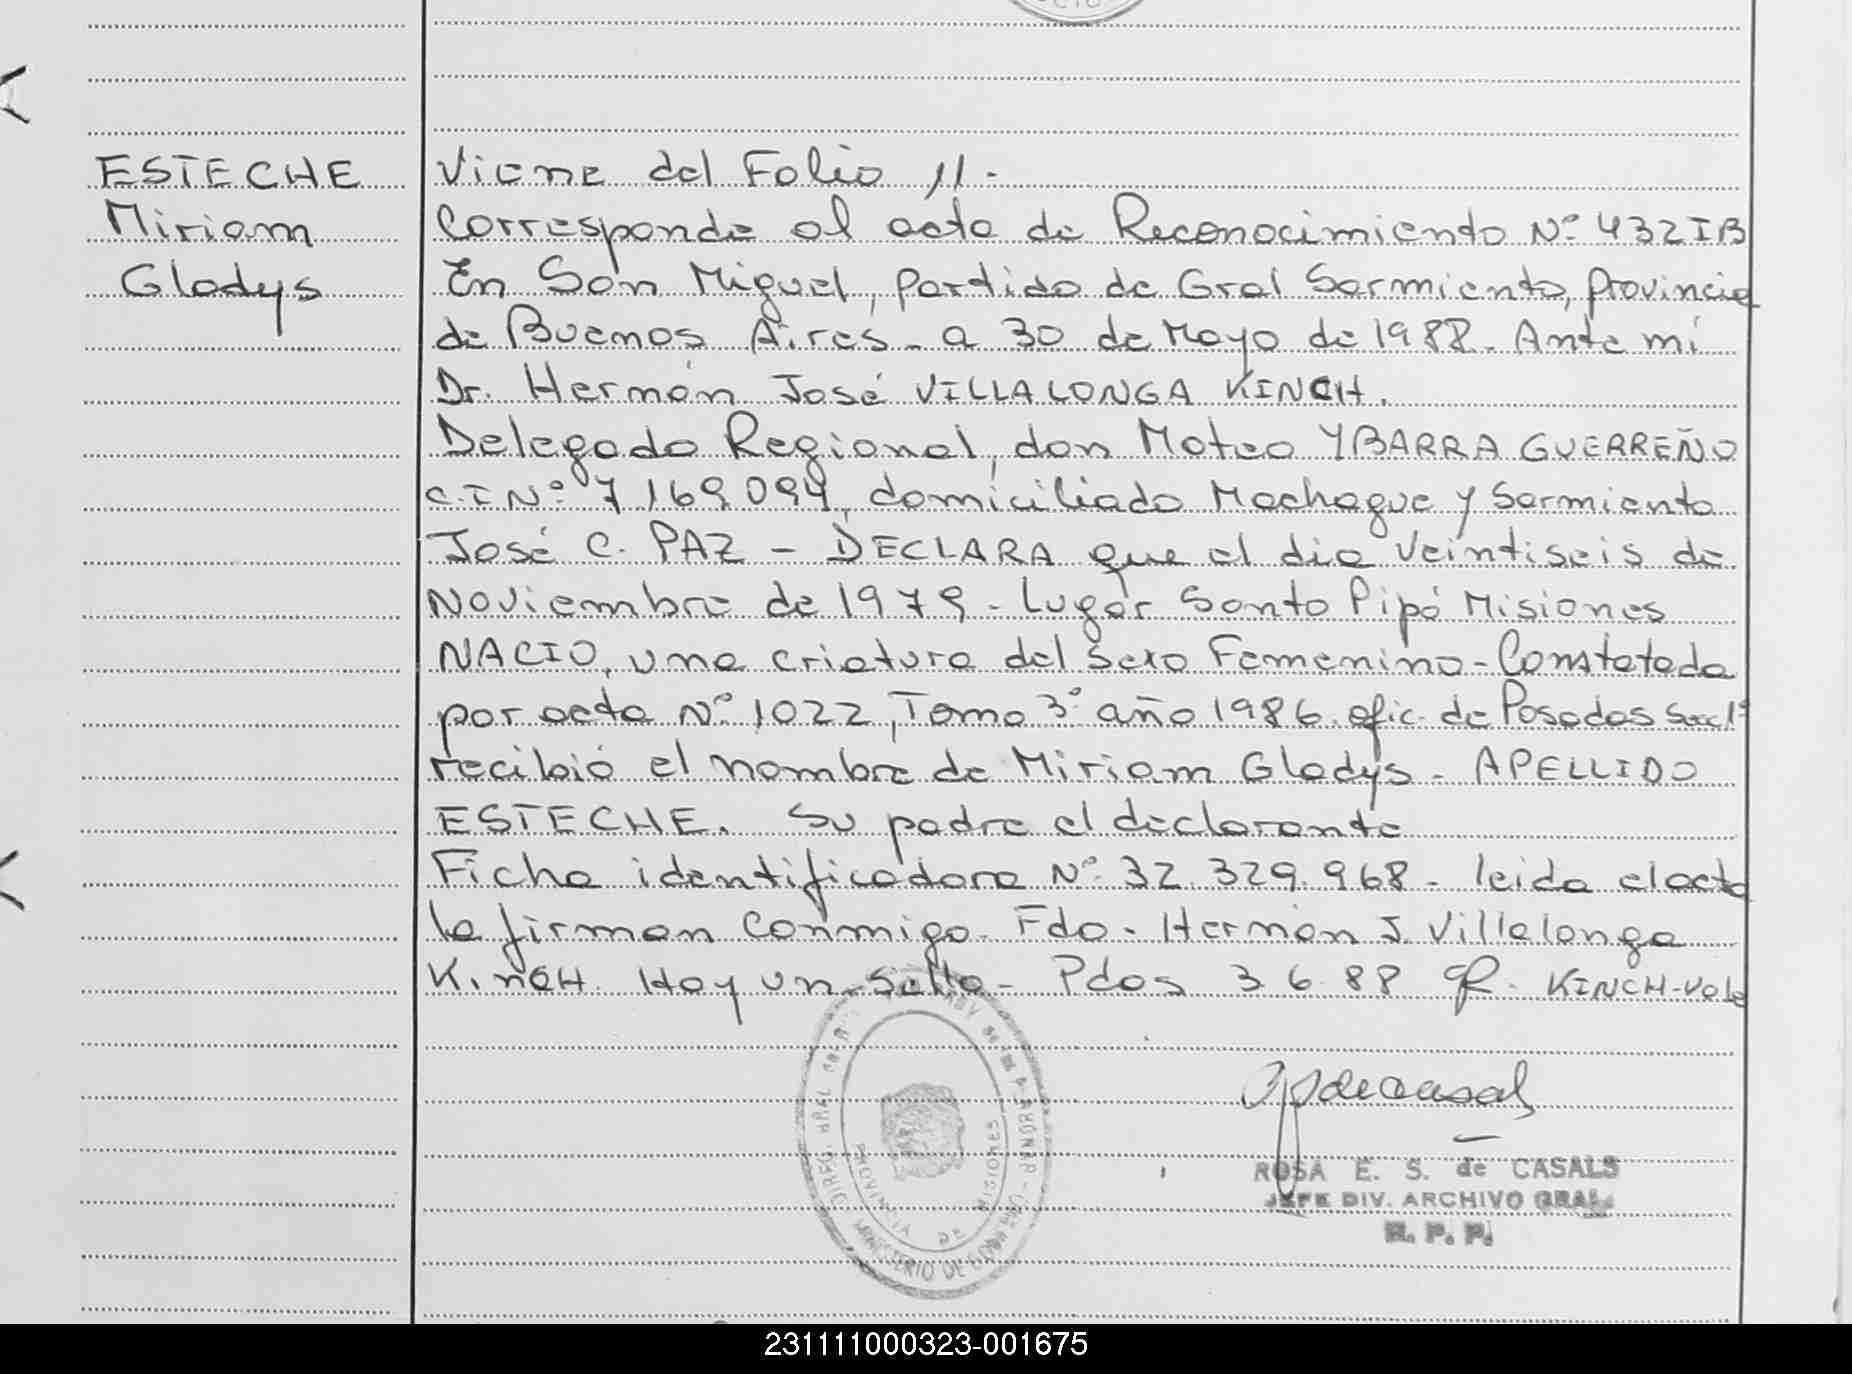 ESTECHE
Miriam
Gladys
Viene del Folio 11.-
Corresponde al acta de Reconocimiento Nº 432IB
En San Miguel, partido de Gral Sarmiento, provincia
de Buenos Aires - a 30 de Mayo de 1988. Ante mí
Dr. Hernán José VILLALONGA KINCH.
Delegado Regional, don Mateo YBARRA GUERREÑO
C.I Nº 7.169.094, domiciliado Machague y Sarmiento
José C. PAZ - DECLARA que el día veintiseis de
Noviembre de 1979 - lugar Santo Pipó Misiones
NACIO, una criatura del sexo Femenino - Constatada
por acta Nº 1022, Tomo 3º año 1986 ofic. de Posadas Secc 1ª
recibió el nombre de Miriam Gladys - APELLIDO
ESTECHE. Su padre el declarante
Ficha identificadora Nº 32.329.968 - leida el acta
la firman conmigo. Fdo. Hernán J. Villalonga
KincH. Hay un sello - Pdas 3 6 88 KINCH-Vale
PROVINCIA DE MISIONES
MINISTERIO DE GOBIERNO
ROSA E. S. de CASALS
JEFE DIV. ARCHIVO GRAL.
R. P. P.
231111000323-001675